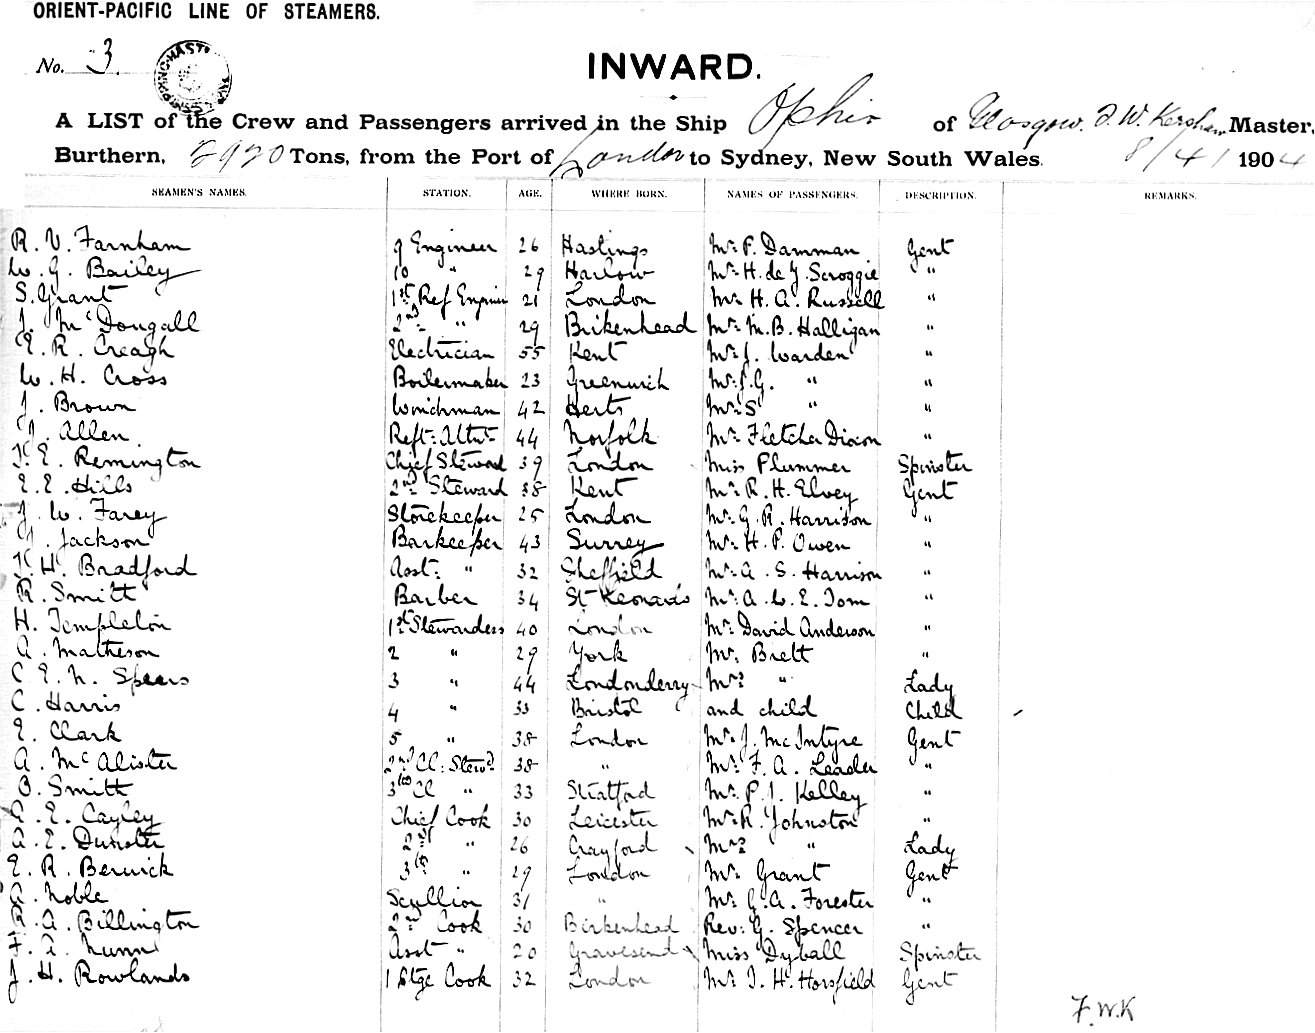 ORIENT-PACIFIC LINE OF STEAMERS.
No. 3.
INWARD.
A LIST of the Crew and Passengers arrived in the Ship Ophir of Glasgow. F.W. Kershaw, Master,
Burthern, 2920 Tons, from the Port of London to Sydney, New South Wales. 8/4/1904
SEAMEN'S NAMES. STATION. AGE. WHERE BORN. NAMES OF PASSENGERS. DESCRIPTION. REMARKS.
R. V. Farnham 9 Engineer 26 Hastings Mr. P. Damman Gent
W. G. Bailey 10 " 29 Harlow Mr. H. de J. Scroggie "
S. Grant 1st Ref Engineer 21 London Mr. H. A. Russell "
J. McDougall 2nd " 29 Birkenhead Mr. M. B. Halligan "
E. R. Creagh Electrician 55 Kent Mr. J. Warden "
W. H. Cross Boilermaker 23 Greenwich Mr. J. G. " "
J. Brown Winchman 42 Herts Mr. S " "
J. Allen 44 Norfolk Mr. Fletcher Dixon "
E. Remington Chief Steward 39 London Miss Plummer Spinster
E. E. Hills 2nd Steward 38 Kent Mr. R. H. Elvey Gent
J. W. Farey Storekeeper 25 London Mr. G. R. Harrison "
J. Jackson Barkeeper 43 Surrey Mr. H. P. Owen "
H. Bradford Asst. " 32 Sheffield Mr. A. S. Harrison "
R. Smith Barber 34 St Leonards Mr. A. W. E. Tom "
H. Templeton 1st Stewardess 40 London Mr. David Anderson "
A. Matheson 2 " 29 York Mr. Brett "
C. E. N. Speers 3 " 44 Londonderry Mrs " Lady
C. Harris 4 " 33 Bristol and child Child
E. Clark 5 " 38 London Mr. J. McIntyre Gent
A. McAlister 2nd Cl. Stewd. 38 " Mr. F. A. Leader "
O. Smith 3rd Cl " 33 Stratford Mr. P. I. Kelley "
A. E. Cayley Chief Cook 30 Leicester Mr. R. Johnston "
A. E. Dunster 2nd " 26 Crayford Mrs " Lady
E. R. Berwick 3rd " 29 London Mr. Grant Gent
A. Noble Scullion 31 " Mr. G. A. Forester "
R. A. Billington 2nd Cook 30 Birkenhead Rev. G. Spencer "
F. A. Nunn Asst " 20 Gravesend Miss Dyball Spinster
J. H. Rowlands 1 Stge Cook 32 London Mr. I. H. Horsfield Gent
F.W.K